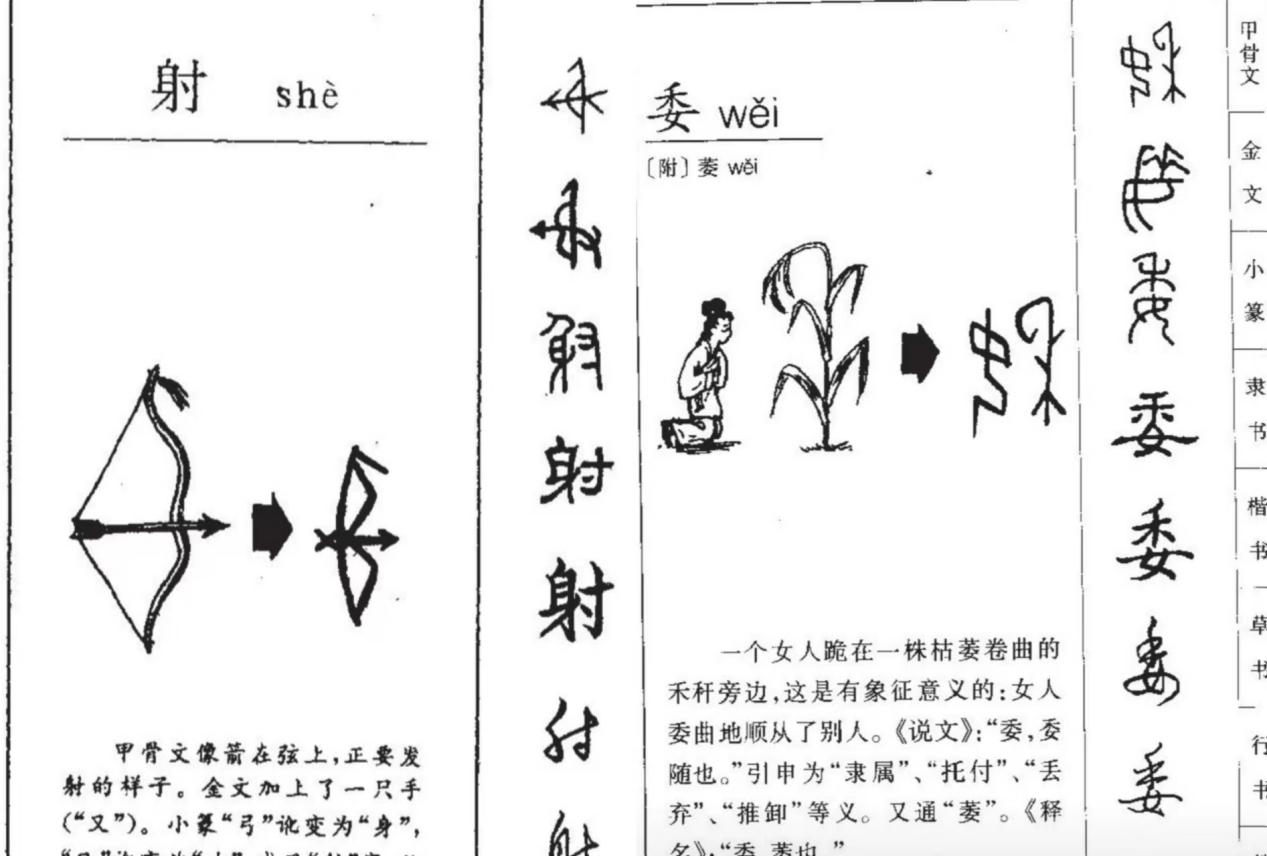 射 shè
甲骨文像箭在弦上，正要发
射的样子。金文加上了一只手
（“又”）。小篆“弓”讹变为“身”，
委 wěi
〔附〕萎 wěi
一个女人跪在一株枯萎卷曲的
禾秆旁边，这是有象征意义的：女人
委曲地顺从了别人。《说文》：“委，委
随也。”引申为“隶属”、“托付”、“丢
弃”、“推卸”等义。又通“萎”。《释
名》：“委，萎也。”
射
射
射
委
委
委
委
委
甲骨文
金文
小篆
隶书
楷书
草书
行书